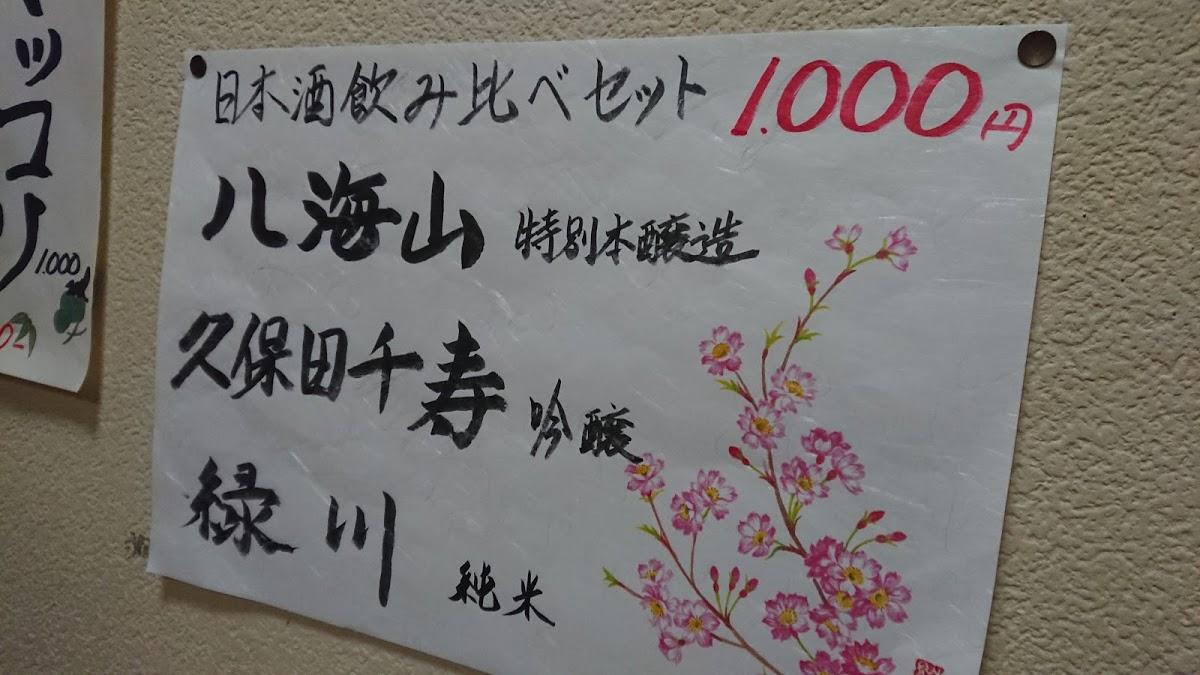 日本酒飲み比べセット 1.000円
八海山 特別本醸造
久保田千寿 吟醸
緑川 純米
ッコリ
1.000